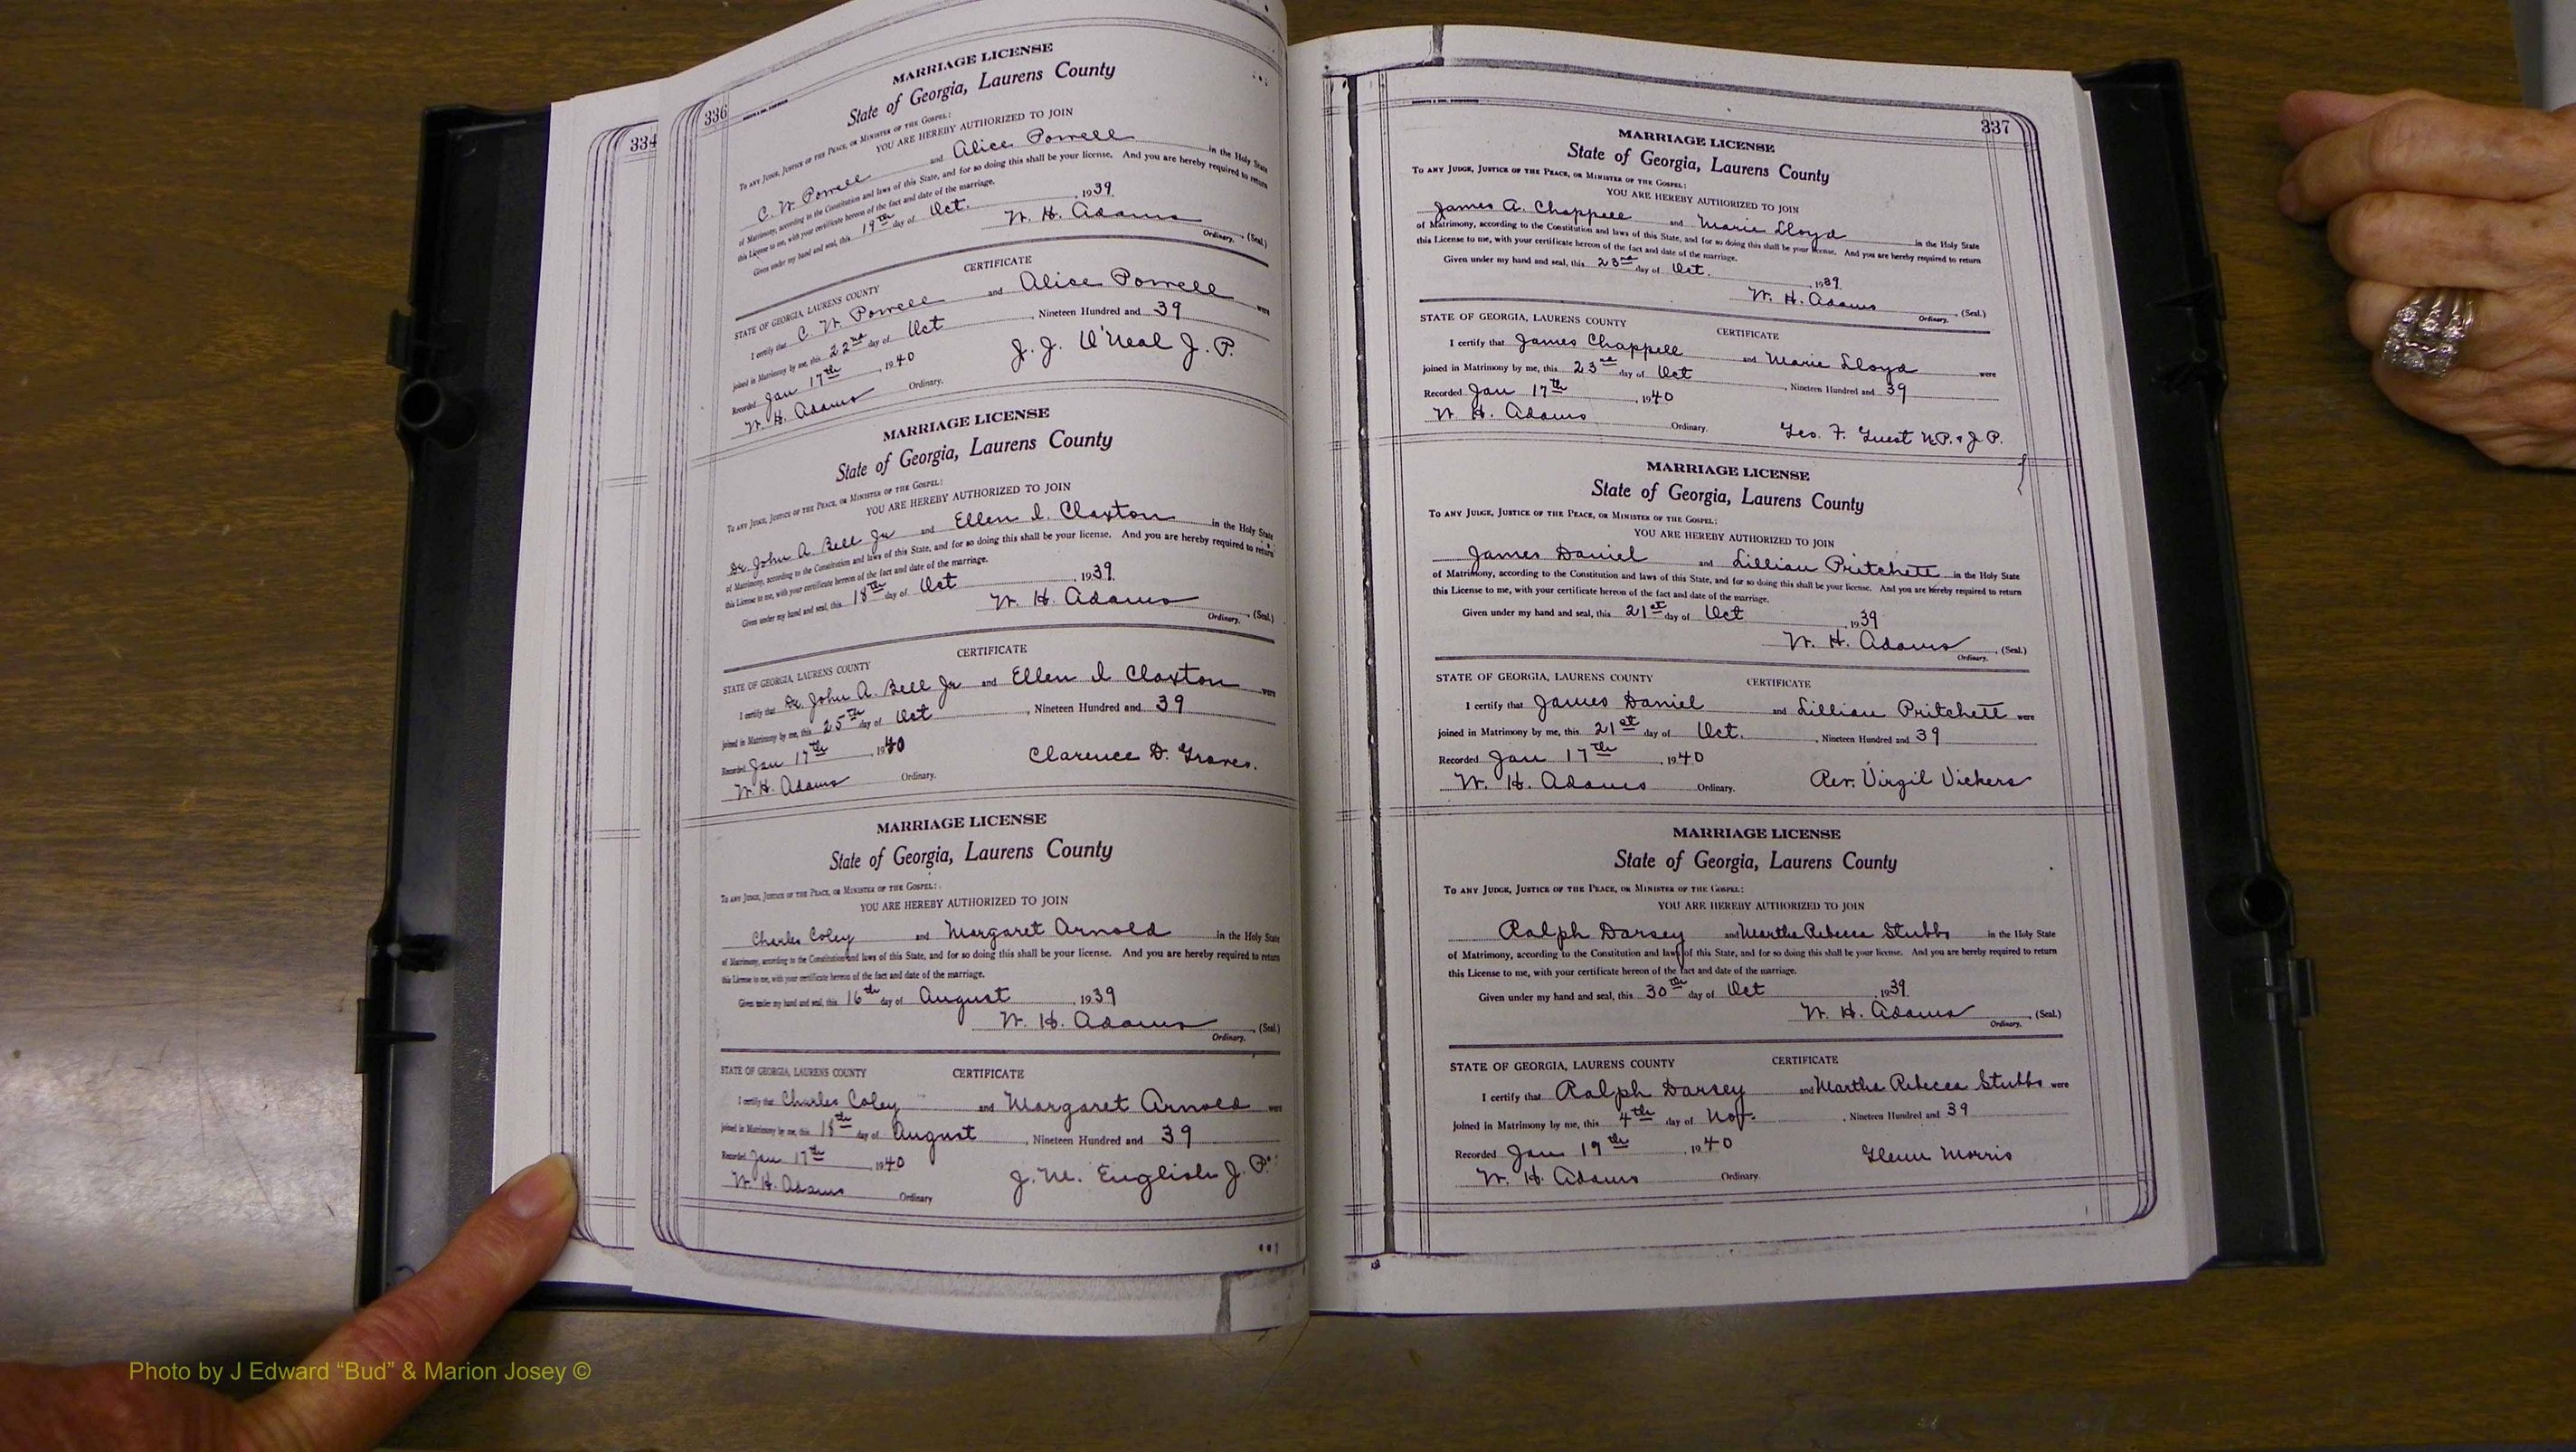 334
336
MARRIAGE LICENSE
State of Georgia, Laurens County
To any Judge, Justice of the Peace, or Minister of the Gospel:
YOU ARE HEREBY AUTHORIZED TO JOIN
C. W. Powell and Alice Powell in the Holy State
of Matrimony, according to the Constitution and laws of this State, and for so doing this shall be your license. And you are hereby required to return
this License to me, with your certificate hereon of the fact and date of the marriage.
Given under my hand and seal, this 19th day of Oct. 1939
W. H. Adams (Seal.)
Ordinary.
CERTIFICATE
STATE OF GEORGIA, LAURENS COUNTY
I certify that C. W. Powell and Alice Powell were
joined in Matrimony by me, this 22nd day of Oct, Nineteen Hundred and 39
Recorded Jan 17th, 1940 J. J. O'Neal J. P.
W. H. Adams Ordinary.
MARRIAGE LICENSE
State of Georgia, Laurens County
To any Judge, Justice of the Peace, or Minister of the Gospel:
YOU ARE HEREBY AUTHORIZED TO JOIN
Dr. John A. Bell Jr and Ellen I. Claxton in the Holy State
of Matrimony, according to the Constitution and laws of this State, and for so doing this shall be your license. And you are hereby required to return
this License to me, with your certificate hereon of the fact and date of the marriage.
Given under my hand and seal, this 18th day of Oct 1939
W. H. Adams, (Seal.)
Ordinary.
CERTIFICATE
STATE OF GEORGIA, LAURENS COUNTY
I certify that Dr. John A. Bell Jr and Ellen I Claxton were
joined in Matrimony by me, this 25th day of Oct, Nineteen Hundred and 39
Recorded Jan 17th, 1940 Clarence D. Graves.
W. H. Adams Ordinary.
MARRIAGE LICENSE
State of Georgia, Laurens County
To any Judge, Justice of the Peace, or Minister of the Gospel:
YOU ARE HEREBY AUTHORIZED TO JOIN
Charles Coley and Margaret Arnold in the Holy State
of Matrimony, according to the Constitution and laws of this State, and for so doing this shall be your license. And you are hereby required to return
this License to me, with your certificate hereon of the fact and date of the marriage.
Given under my hand and seal, this 16th day of August, 1939
W. H. Adams, (Seal.)
Ordinary.
STATE OF GEORGIA, LAURENS COUNTY CERTIFICATE
I certify that Charles Coley and Margaret Arnold were
joined in Matrimony by me, this 18th day of August, Nineteen Hundred and 39
Recorded Jan 17th, 1940 J. M. English J. P.
W. H. Adams Ordinary
337
MARRIAGE LICENSE
State of Georgia, Laurens County
To any Judge, Justice of the Peace, or Minister of the Gospel:
YOU ARE HEREBY AUTHORIZED TO JOIN
James A. Chappell and Marie Lloyd in the Holy State
of Matrimony, according to the Constitution and laws of this State, and for so doing this shall be your license. And you are hereby required to return
this License to me, with your certificate hereon of the fact and date of the marriage.
Given under my hand and seal, this 23rd day of Oct., 1939
W. H. Adams (Seal.)
Ordinary.
STATE OF GEORGIA, LAURENS COUNTY CERTIFICATE
I certify that James Chappell and Marie Lloyd were
joined in Matrimony by me, this 23rd day of Oct, Nineteen Hundred and 39
Recorded Jan 17th, 1940
W. H. Adams Ordinary. Geo. F. Guest N.P. & J. P.
MARRIAGE LICENSE
State of Georgia, Laurens County
To any Judge, Justice of the Peace, or Minister of the Gospel:
YOU ARE HEREBY AUTHORIZED TO JOIN
James Daniel and Lillian Pritchett in the Holy State
of Matrimony, according to the Constitution and laws of this State, and for so doing this shall be your license. And you are hereby required to return
this License to me, with your certificate hereon of the fact and date of the marriage.
Given under my hand and seal, this 21st day of Oct, 1939
W. H. Adams, (Seal.)
Ordinary.
STATE OF GEORGIA, LAURENS COUNTY CERTIFICATE
I certify that James Daniel and Lillian Pritchett were
joined in Matrimony by me, this 21st day of Oct., Nineteen Hundred and 39
Recorded Jan 17th, 1940
W. H. Adams Ordinary. Rev. Virgil Vickers
MARRIAGE LICENSE
State of Georgia, Laurens County
To any Judge, Justice of the Peace, or Minister of the Gospel:
YOU ARE HEREBY AUTHORIZED TO JOIN
Ralph Darsey and Martha Rebecca Stubbs in the Holy State
of Matrimony, according to the Constitution and laws of this State, and for so doing this shall be your license. And you are hereby required to return
this License to me, with your certificate hereon of the fact and date of the marriage.
Given under my hand and seal, this 30th day of Oct, 1939
W. H. Adams, (Seal.)
Ordinary.
STATE OF GEORGIA, LAURENS COUNTY CERTIFICATE
I certify that Ralph Darsey and Martha Rebecca Stubbs were
joined in Matrimony by me, this 4th day of Nov., Nineteen Hundred and 39
Recorded Jan 19th, 1940 Glenn Morris
W. H. Adams Ordinary
Photo by J Edward “Bud” & Marion Josey ©